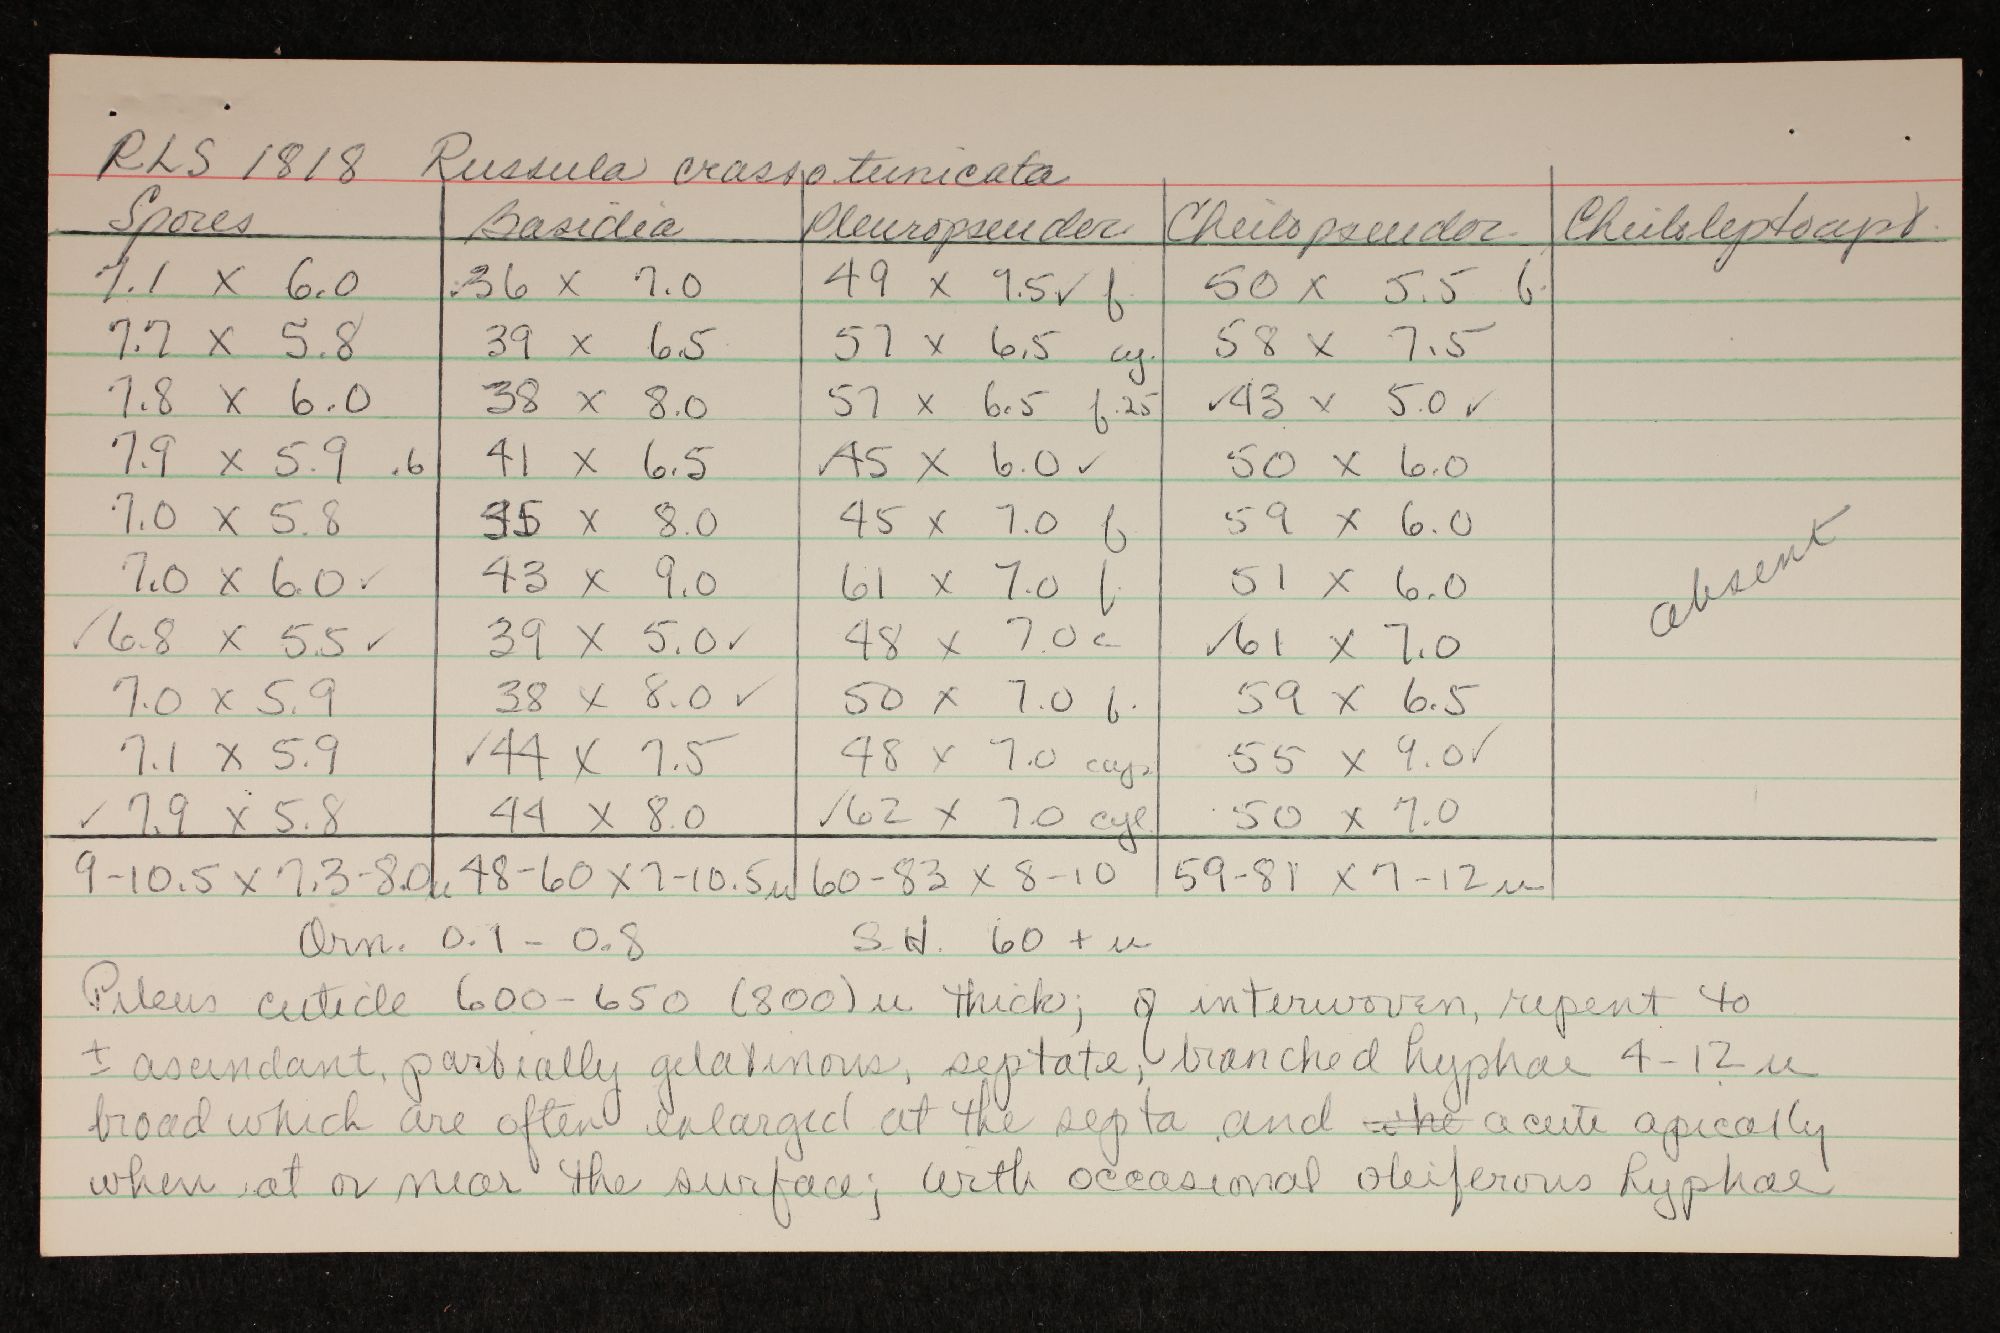 RLS 1818 Russula crassotunicata
Spores Basidia Pleuropseudor. Cheilopseudor. Cheiloleptocyst.
7.1 x 6.0 36 x 7.0 49 x 9.5 ✓ f. 50 x 5.5 f.
7.7 x 5.8 39 x 6.5 57 x 6.5 cy. 58 x 7.5
7.8 x 6.0 38 x 8.0 57 x 6.5 f. 25 ✓43 x 5.0 ✓
7.9 x 5.9 .6 41 x 6.5 ✓45 x 6.0 ✓ 50 x 6.0
7.0 x 5.8 35 x 8.0 45 x 7.0 f. 59 x 6.0
7.0 x 6.0 ✓ 43 x 9.0 61 x 7.0 f. 51 x 6.0 absent
✓6.8 x 5.5 ✓ 39 x 5.0 ✓ 48 x 7.0 c ✓61 x 7.0
7.0 x 5.9 38 x 8.0 ✓ 50 x 7.0 f. 59 x 6.5
7.1 x 5.9 ✓44 x 7.5 48 x 7.0 55 x 9.0 ✓
✓ 7.9 x 5.8 44 x 8.0 ✓62 x 7.0 cyl. 50 x 7.0
9-10.5 x 7.3-8.0 u 48-60 x 7-10.5 u 60-83 x 8-10 59-81 x 7-12 u
Orn. 0.1 - 0.8 S.H. 60 + u
Pileus cuticle 600-650 (800) u thick; of interwoven, repent to
± ascendant, partially gelatinous, septate, branched hyphae 4-12 u
broad which are often enlarged at the septa and acute apically
when at or near the surface; with occasional oleiferous hyphae